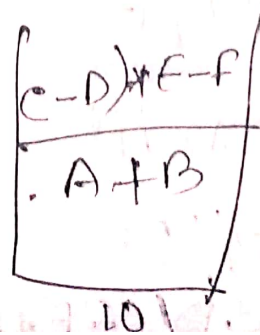 (C-D)*E-F
A+B
10